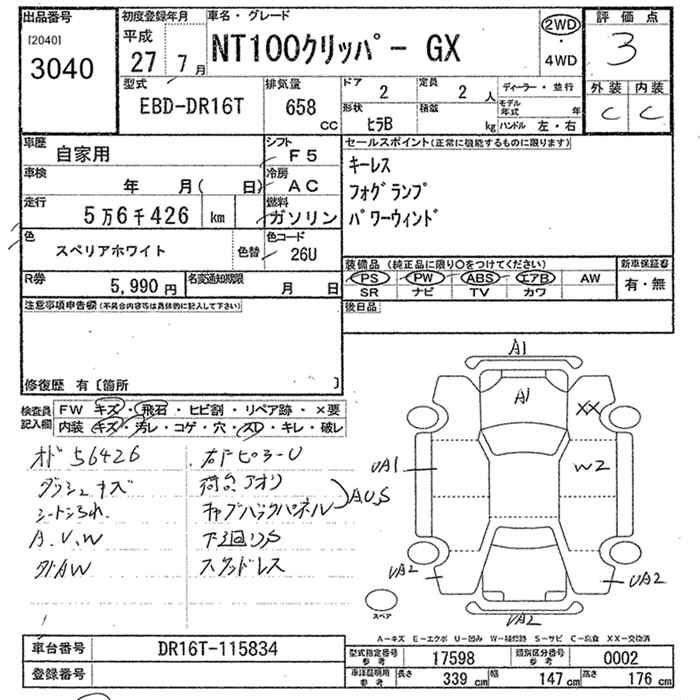 出品番号
[2040]
3040
初度登録年月
平成
27 7月
車名・グレード
NT100クリッパー GX
2WD
・
4WD
評価点
3
外装 内装
C C
型式
EBD-DR16T
排気量
658
CC
ドア
2
定員
2 人
ディーラー・並行
形状
ヒラB
積載
kg
モデル年式 年
ハンドル 左・右
車歴
自家用
シフト
F5
車検
年 月( 日)
冷房
AC
走行
5万6千426 km
燃料
ガソリン
色
スペリアホワイト
色替
色コード
26U
R券
5,990円
名変通知期限
月 日
セールスポイント(正常に機能するものに限ります)
キーレス
フォグランプ
パワーウィンド
装備品(純正品に限り○をつけてください)
新車保証書
PS PW ABS エアB AW
SR ナビ TV カワ
有・無
後日品
注意事項申告欄(不具合内容等は具体的に記入して下さい)
修復歴 有〔箇所 〕
検査員記入欄
FW キズ・飛石・ヒビ割・リペア跡・×要
内装 キズ・汚レ・コゲ・穴・スレ・キレ・破レ
オド 56426
ダッシュキズ
A.U.W
荷台アオリ
キャブバックパネル
A.U.S
下回りS
スタッドレス
A1
A1
XX
UA1
W2
UA2
UA2
UA2
スペア
A－キズ E－エクボ U－凹み W－補修跡 S－サビ C－腐食 XX－交換済
車台番号
DR16T-115834
登録番号
型式指定番号
参考
17598
類別区分番号
参考
0002
車検証明用
参考
長さ
339 cm
幅
147 cm
高さ
176 cm